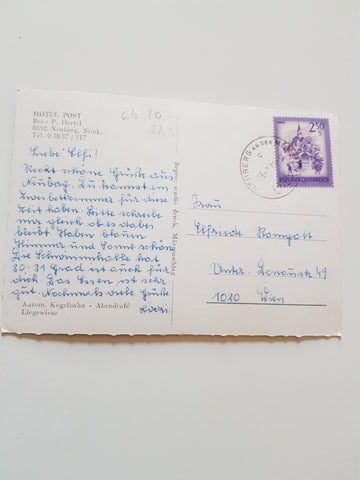 HOTEL POST
Bes.: P. Hertl
8692 Neuberg, Stmk.
Tel. 0 38 57 / 317
ab 20.
Liebe Elfi!
Recht schöne Grüße aus
Neuberg. Du kannst ein
Zweibettzimmer für dies
Zeit haben. Bitte schreibe
mir gleich ob es dabei
bleibt. Haben blauen
Himmel und Sonne schön.
Die Schwimmhalle hat
30-31 Grad ist auch für
dich. Das Essen ist sehr
gut. Nochmals viele Grüße
Autom. Kegelbahn - Abendcafé
Liegewiese
Repro studio druck Mürzzuschlag
NEUBERG AN DER
2.50
REPUBLIK ÖSTERREICH
Frau
Elfriede
Unt. Donaustr. 49
1020 Wien